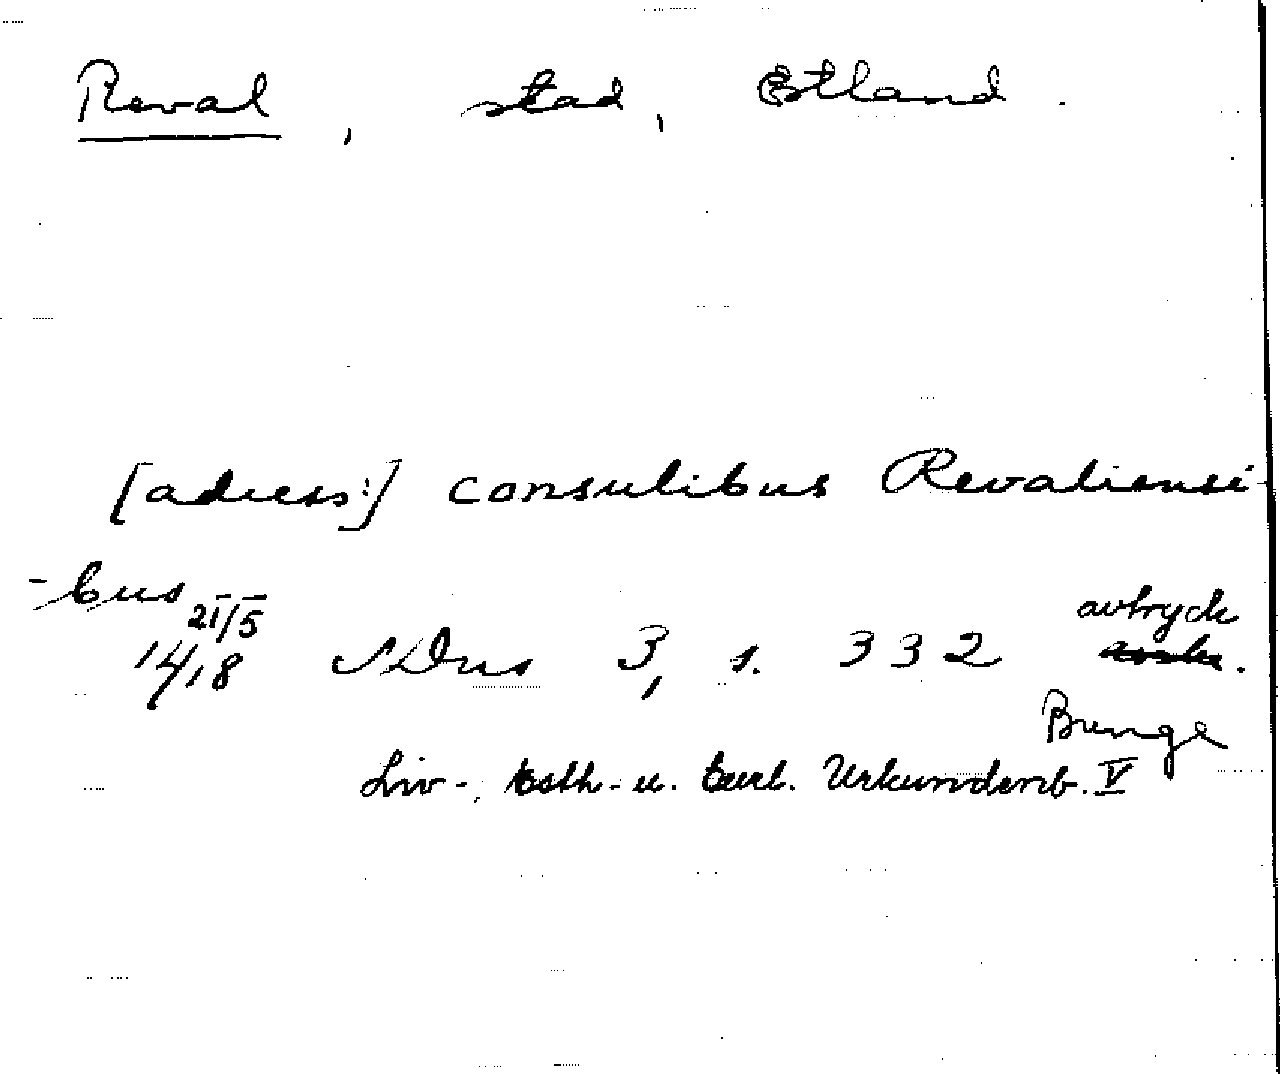 Reval, stad, Estland.
[adress:] consulibus Revaliensi
-bus
21/5 avtryck
1418 SDns 3, s. 332
Bunge
Liv-, Esth- u. Curl. Urkundenb. V